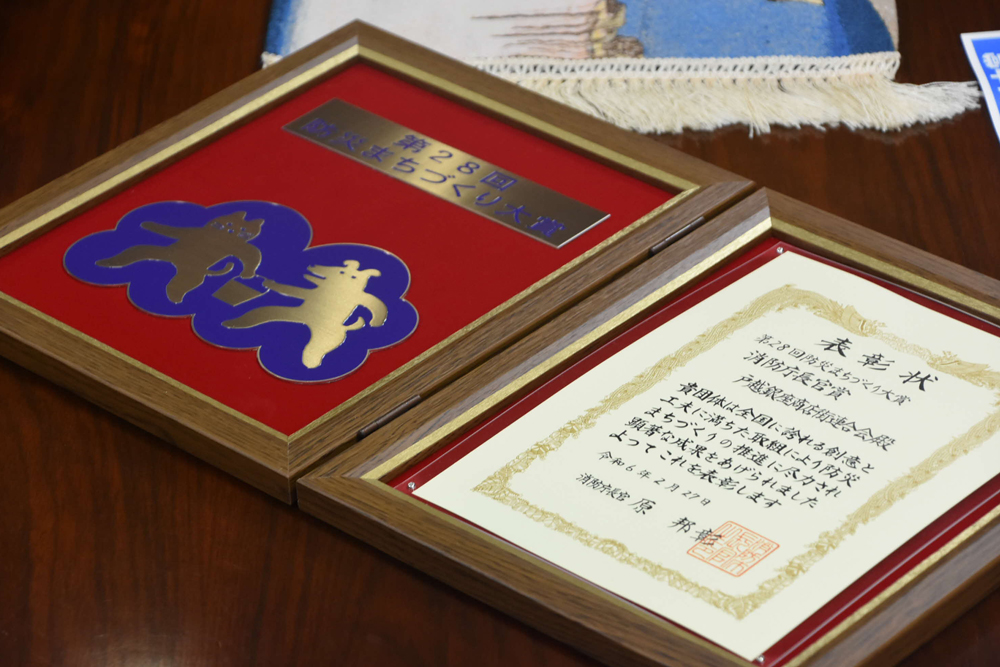 第28回
防災まちづくり大賞
表彰状
第28回防災まちづくり大賞
消防庁長官賞
戸越銀座商店街連合会殿
貴団体は全国に誇れる創意と
工夫に満ちた取組により防災
まちづくりの推進に尽力され
顕著な成果をあげられました
よってこれを表彰します
令和6年2月27日
消防庁長官 原 邦彰